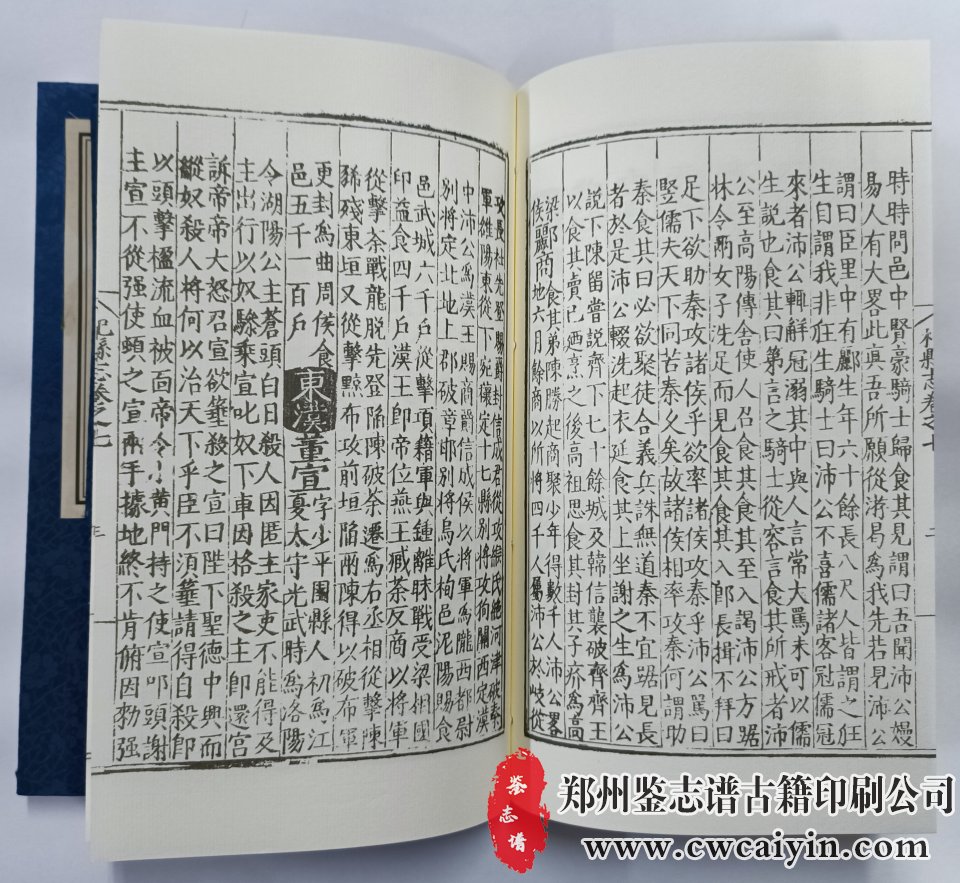 時時問邑中賢豪騎士歸食其見謂曰吾聞沛公嫚
易人有大畧此真吾所願從游曷爲我先若見沛公
謂曰臣里中有酈生年六十餘長八尺人皆謂之狂
生自謂我非狂生騎士曰沛公不喜儒諸客冠儒冠
來者沛公輙解冠溺其中與人言常大罵未可以儒
生説也食其曰第言之騎士從容言食其所戒者沛
公至高陽傳舍使人召食其食其至入謁沛公方踞
林令兩女子洗足而見食其食其入即長揖不拜曰
足下欲助秦攻諸侯乎欲率諸侯攻秦乎沛公罵曰
竪儒夫天下同苦秦久矣故諸侯相率攻秦何謂助
秦食其曰必欲聚徒合義兵誅無道秦不宜踞見長
者於是沛公輟洗起衣延食其上坐謝之生爲沛公
説下陳留嘗説齊下七十餘城及韓信襲破齊齊王
以食其賣已廼烹之後高祖思食其封其子疥爲高
梁食其弟陳勝起商聚少年得數千人沛公畧
侯酈商地六月餘商以所將四千人屬沛公於岐從
攻長社先登賜爵封信成君從攻緱氏絶河津破秦
軍雒陽東從下宛穰定十七縣別將攻狗關西定漢
中沛公爲漢王賜商爵信成侯以將軍爲隴西都尉
別將定北地上郡破章邯別將烏氏栒邑泥陽賜食
邑武城六千戶從擊項籍軍與鍾離眛戰受梁相國
印益食四千戶漢王即帝位燕王臧荼反商以將軍
從擊荼戰龍脱先登陷陳破荼遷爲右丞相從擊陳
豨殘東垣又從擊黥布攻前垣陷兩陳得以破布軍
更封爲曲周侯食
邑五千一百戶
東漢董宣字少平圉縣人初爲江
夏太守光武時爲洛陽
令湖陽公主蒼頭白日殺人因匿主家吏不能得及
主出行以奴驂乘宣叱奴下車因格殺之主即還宮
訴帝帝大怒召宣欲箠殺之宣曰陛下聖德中興而
縱奴殺人將何以治天下乎臣不須箠請得自殺即
以頭擊楹流血被面帝令小黃門持之使宣叩頭謝
主宣不從强使頓之宣兩手據地終不肯俯因勑强
杞縣志卷之七
三
鉴志谱
郑州鉴志谱古籍印刷公司
www.cwcaiyin.com